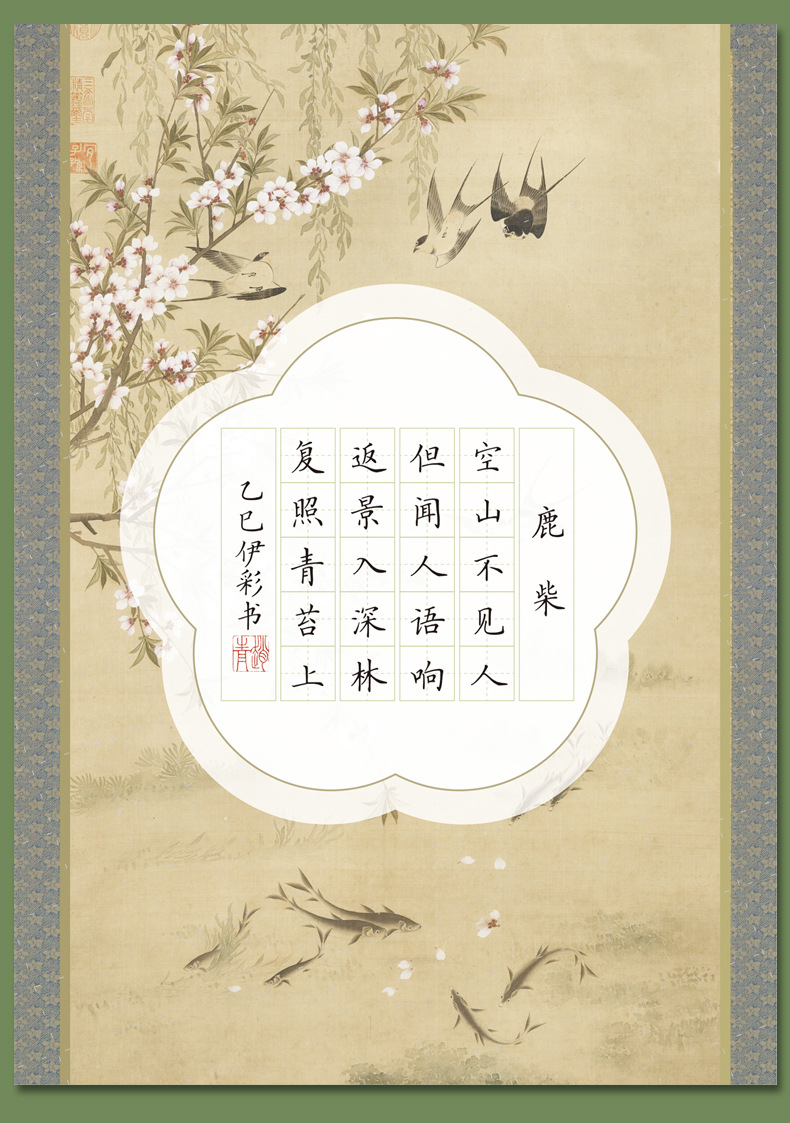 鹿柴
空山不见人
但闻人语响
返景入深林
复照青苔上
乙巳伊彩书